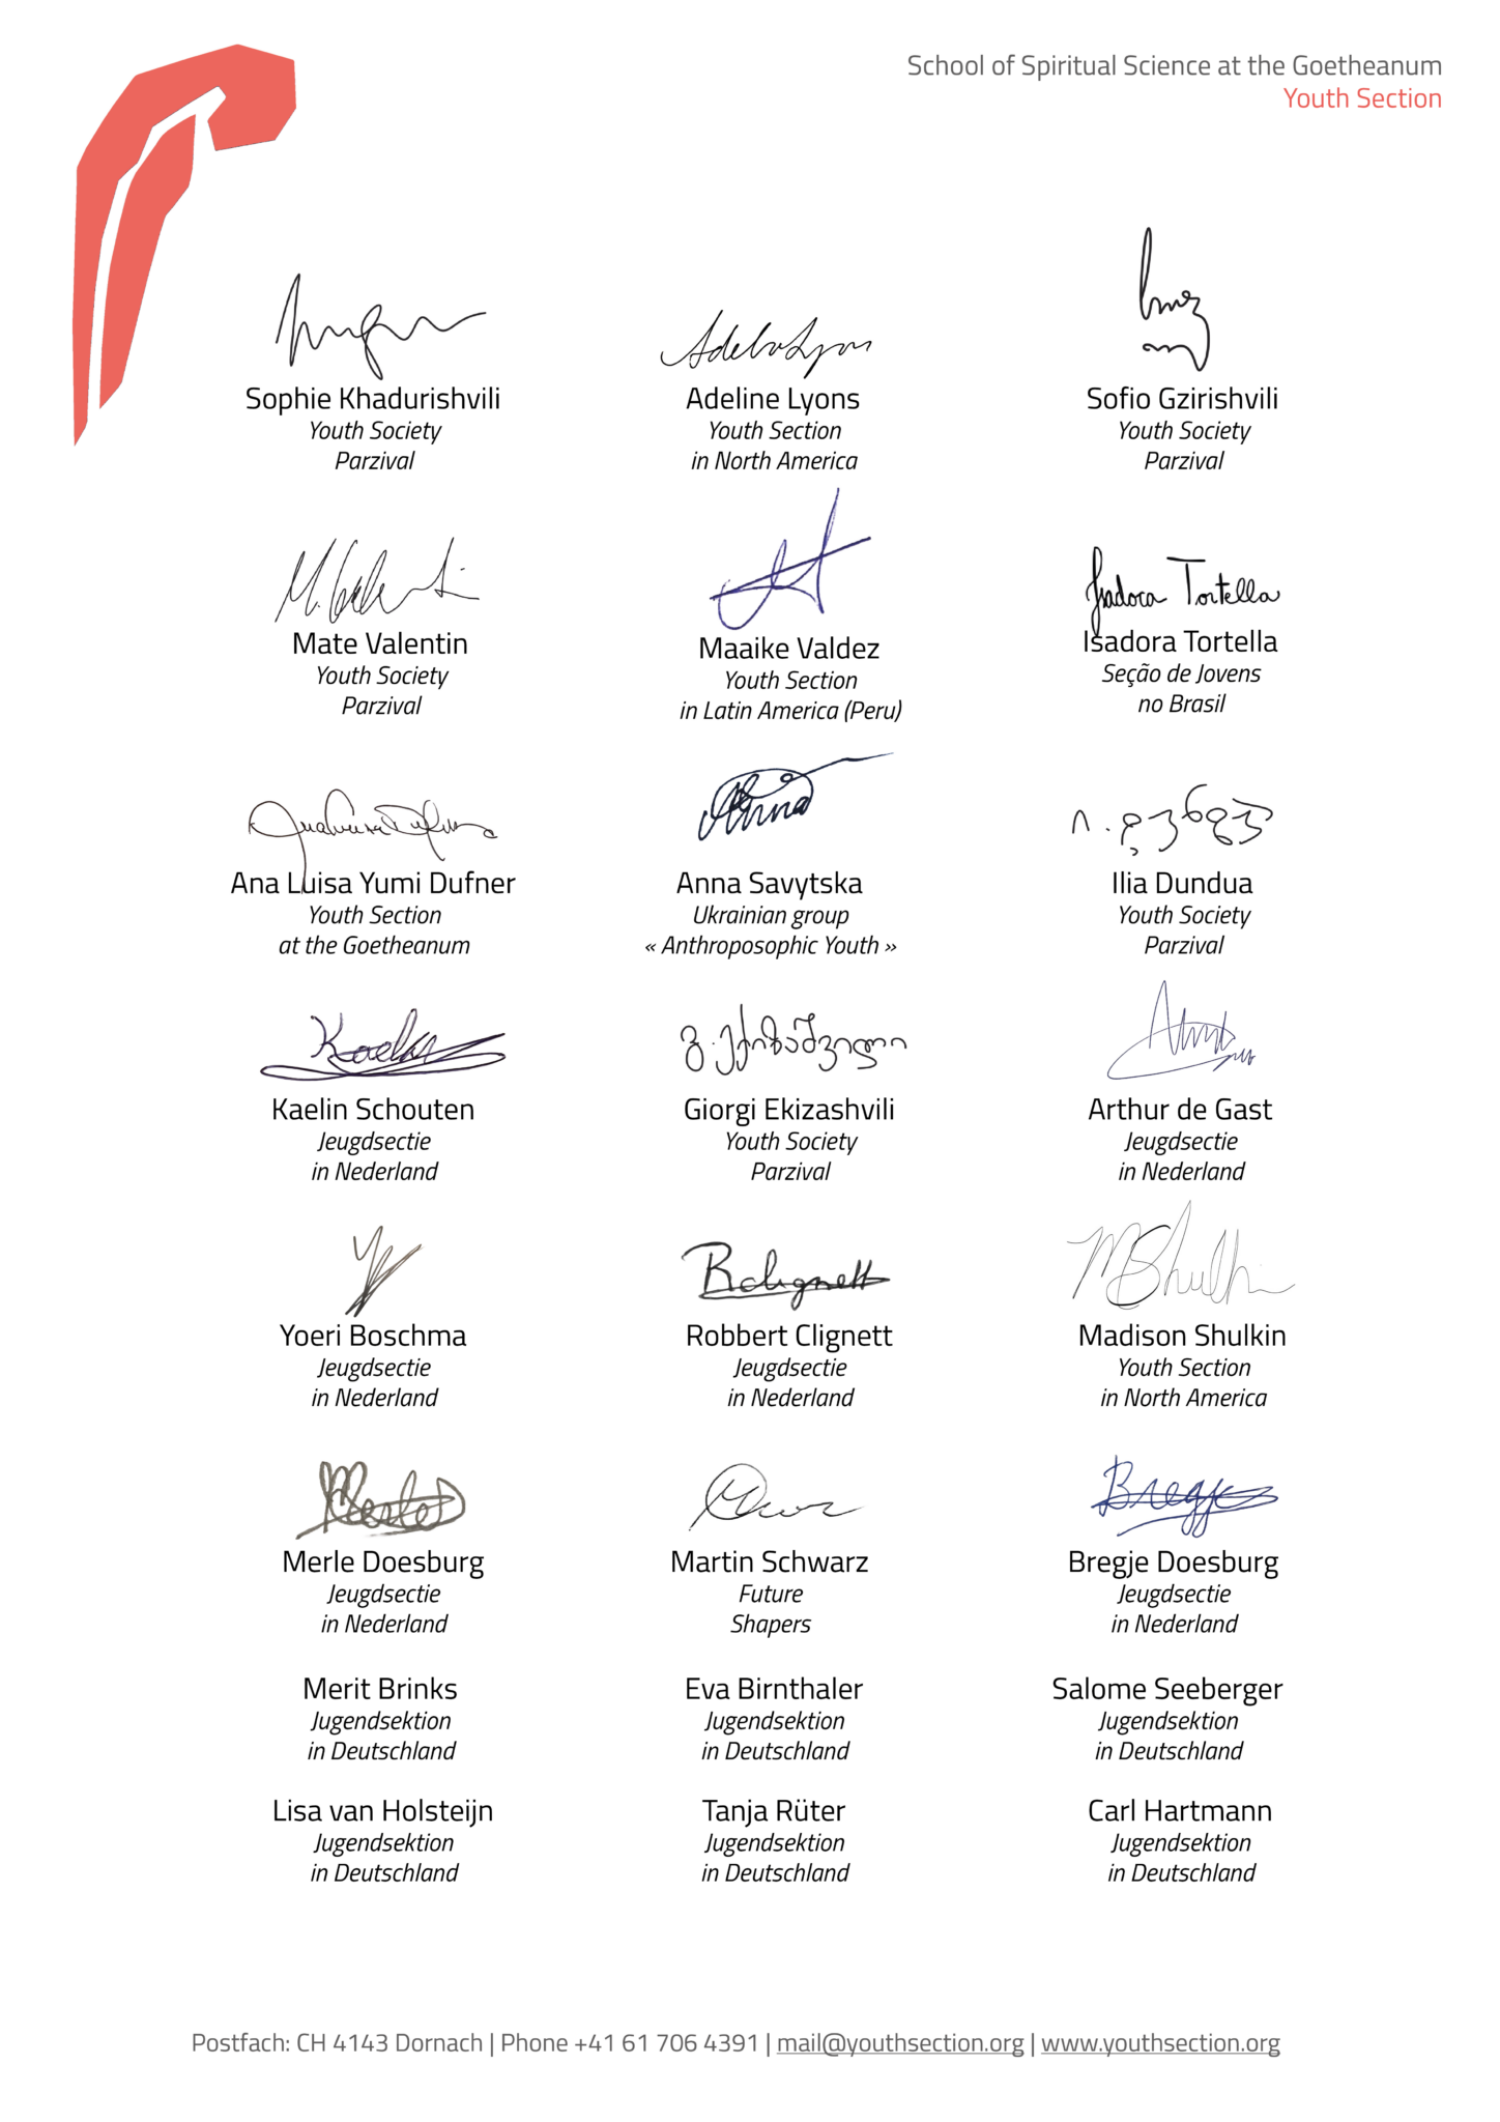 School of Spiritual Science at the Goetheanum
Youth Section
Sophie Khadurishvili
Youth Society
Parzival
Adeline Lyons
Youth Section
in North America
Sofio Gzirishvili
Youth Society
Parzival
Mate Valentin
Youth Society
Parzival
Maaike Valdez
Youth Section
in Latin America (Peru)
Isadora Tortella
Isadora Tortella
Seção de Jovens
no Brasil
Ana Luisa Yumi Dufner
Youth Section
at the Goetheanum
Anna
Anna Savytska
Ukrainian group
« Anthroposophic Youth »
Ilia Dundua
Youth Society
Parzival
Kaelin Schouten
Jeugdsectie
in Nederland
გ. ექიზაშვილი
Giorgi Ekizashvili
Youth Society
Parzival
Arthur de Gast
Jeugdsectie
in Nederland
Yoeri Boschma
Jeugdsectie
in Nederland
Robbert Clignett
Jeugdsectie
in Nederland
Madison Shulkin
Youth Section
in North America
Merle Doesburg
Jeugdsectie
in Nederland
Martin Schwarz
Future
Shapers
Bregje
Bregje Doesburg
Jeugdsectie
in Nederland
Merit Brinks
Jugendsektion
in Deutschland
Eva Birnthaler
Jugendsektion
in Deutschland
Salome Seeberger
Jugendsektion
in Deutschland
Lisa van Holsteijn
Jugendsektion
in Deutschland
Tanja Rüter
Jugendsektion
in Deutschland
Carl Hartmann
Jugendsektion
in Deutschland
Postfach: CH 4143 Dornach | Phone +41 61 706 4391 | mail@youthsection.org | www.youthsection.org